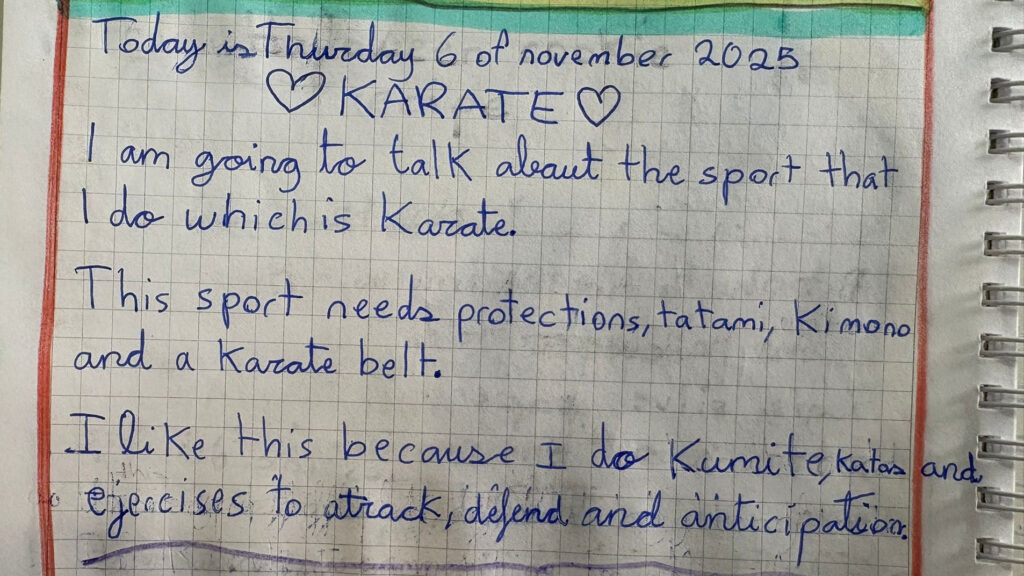 Today is Thurday 6 of november 2025
♡ KARATE ♡
I am going to talk about the sport that
I do which is Karate.
This sport needs protections, tatami, Kimono
and a Karate belt.
I like this because I do Kumite, Katas and
ejercises to atrack, defend and anticipation.